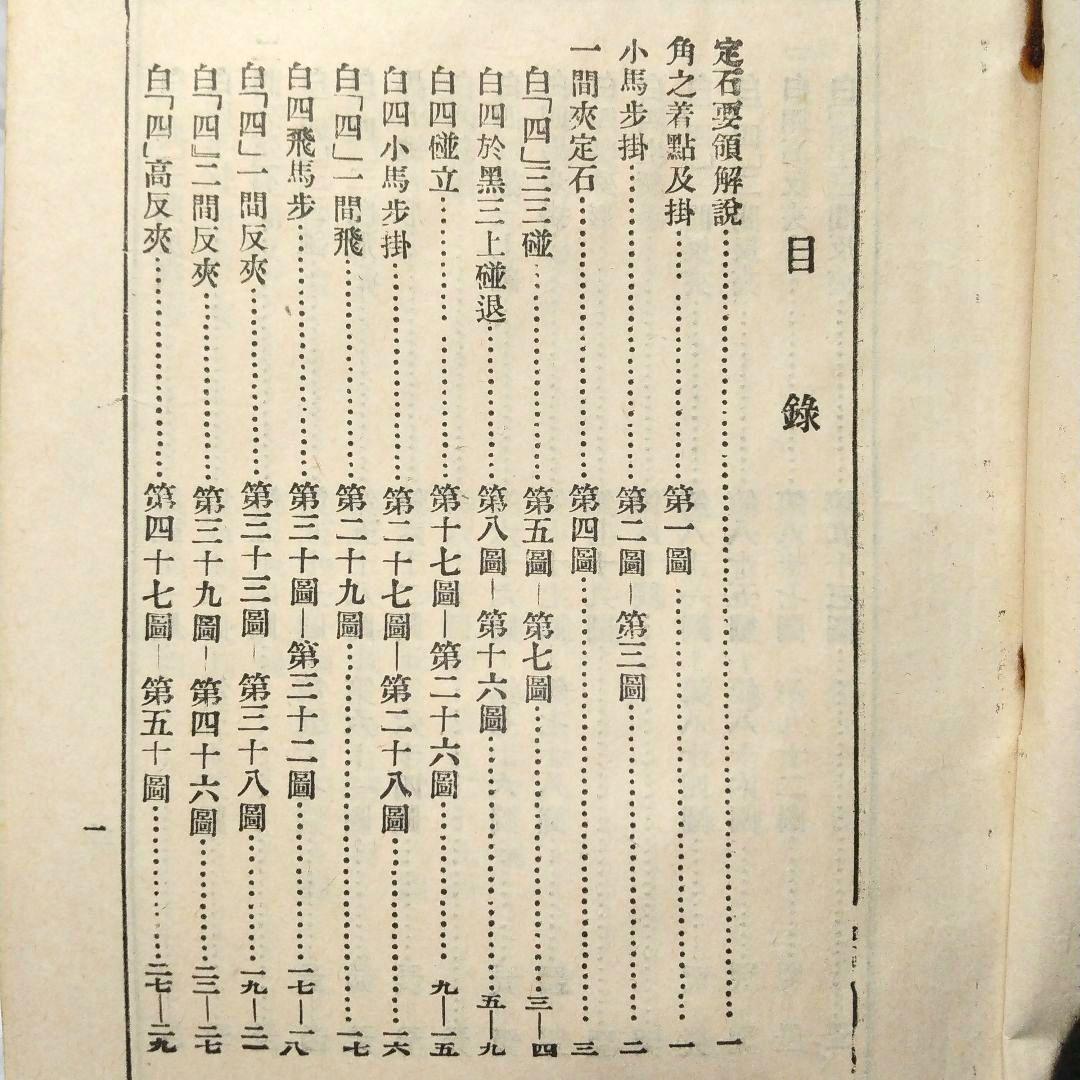 目錄
定石要領解說……一
角之着點及掛……第一圖……一
小馬步掛……第二圖—第三圖……二
一間夾定石……第四圖……三
白「四」三三碰……第五圖—第七圖……三—四
白四於黑三上碰退……第八圖—第十六圖……五—九
白四碰立……第十七圖—第二十六圖……九—一五
白四小馬步掛……第二十七圖—第二十八圖……一六
白「四」一間飛……第二十九圖……一七
白四飛馬步……第三十圖—第三十二圖……一七—一八
白「四」一間反夾……第三十三圖—第三十八圖……一九—二一
白「四」二間反夾……第三十九圖—第四十六圖……二三—二七
白「四」高反夾……第四十七圖—第五十圖……二七—二九
一